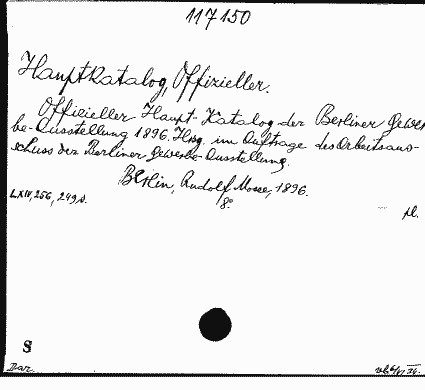 117150
Hauptkatalog, Offizieller.
Offizieller Haupt-Katalog der Berliner Gewer-
be-Ausstellung 1896. Hrsg. im Auftrage des Arbeitsaus-
schuss der Berliner Gewerbe-Ausstellung.
Berlin, Rudolf Mosse, 1896.
8°
LXIV, 256, 249 S.
pl.
S
Dar.